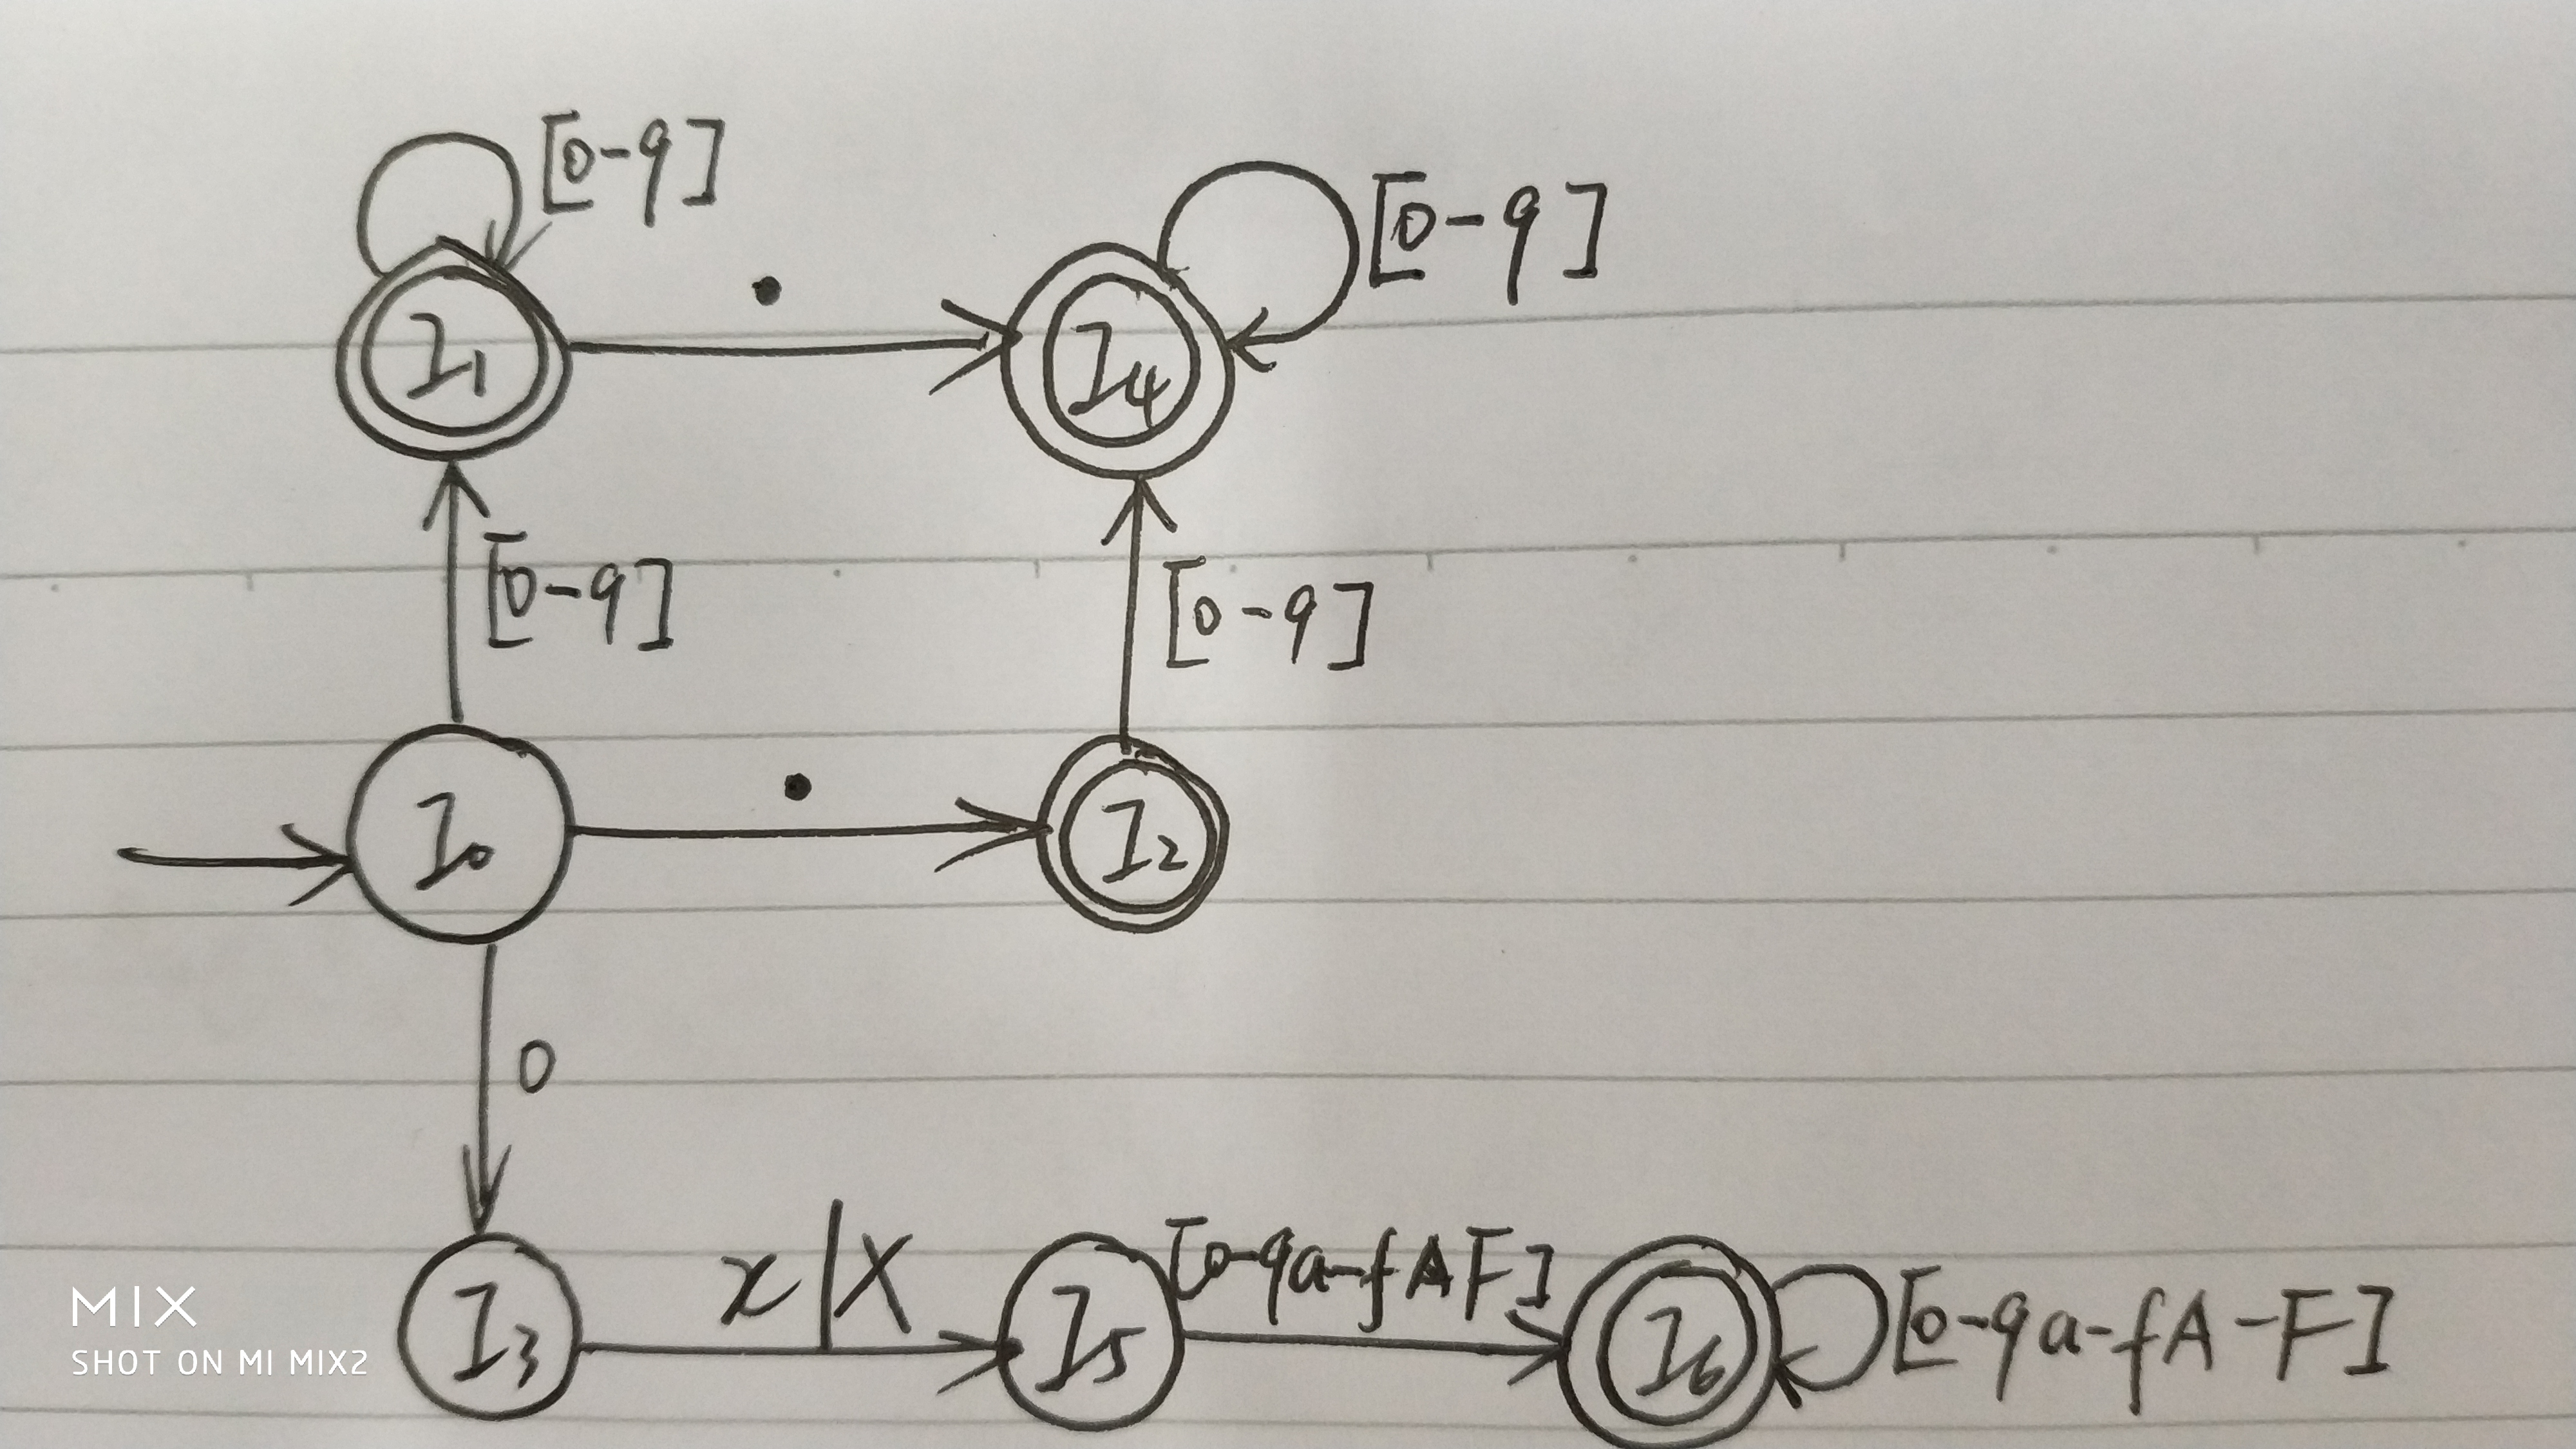 [0-9]
[0-9]
•
I1
I4
[0-9]
[0-9]
•
I0
I2
0
x|X
[0-9a-fAF]
I3
I5
I6
[0-9a-fA-F]
MIX
SHOT ON MI MIX2